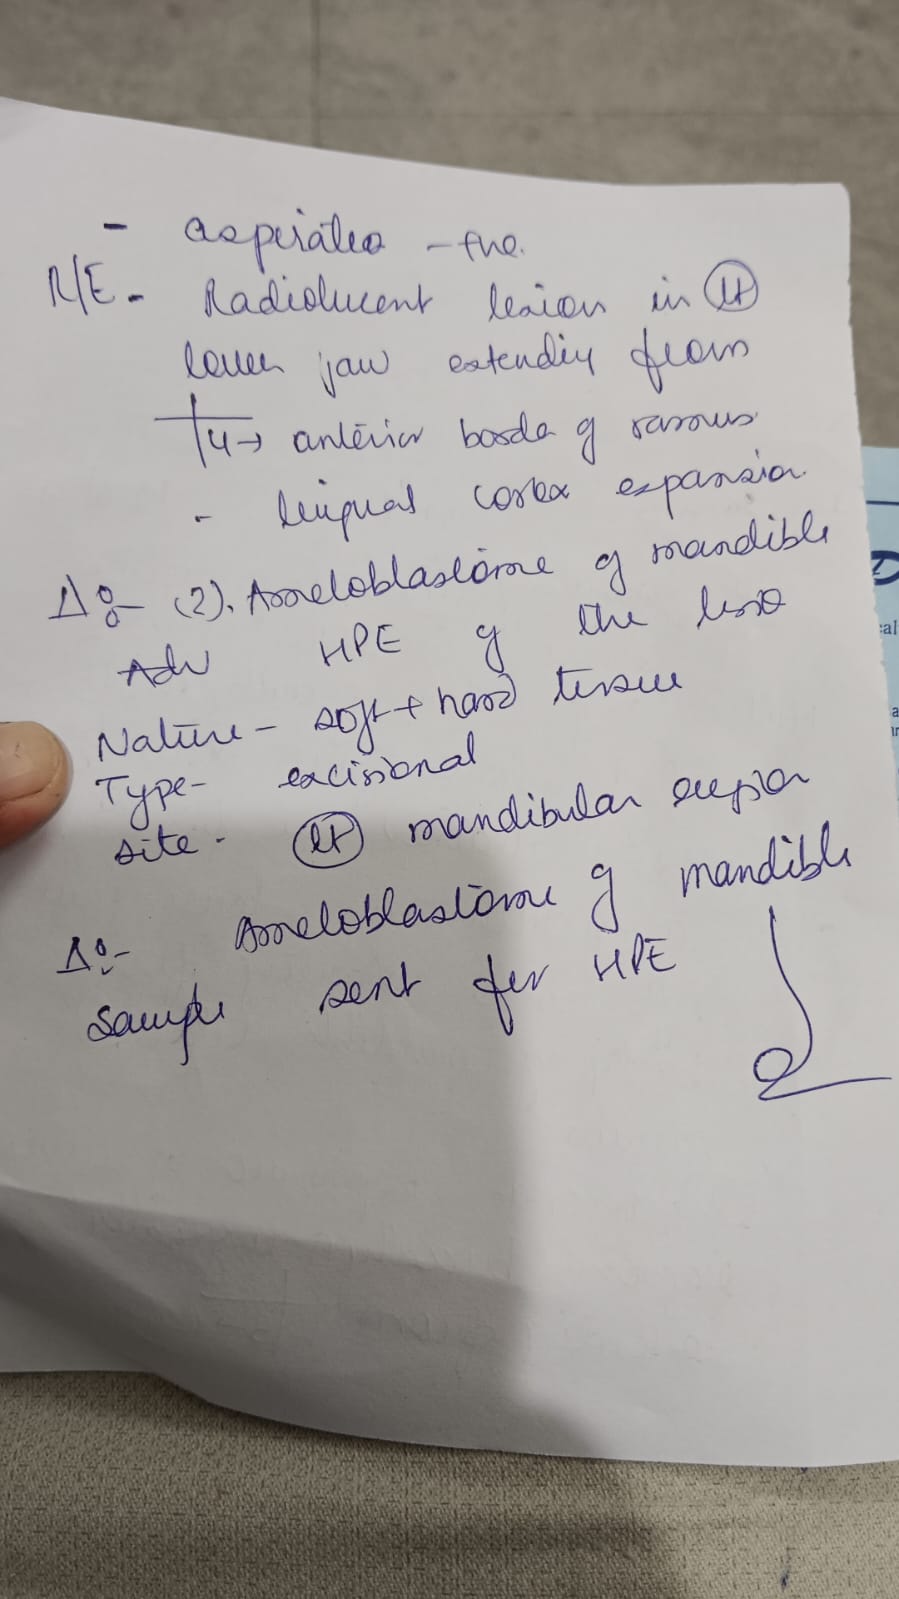 - aspirates - +ve.
R/E - Radiolucent lesion in Lt
lower jaw extending from
4 → anterior border of ramus
- lingual cortex expansion.
Δ:- (2). Ameloblastoma of mandible
Adv HPE of the
Nature - soft + hard tissue
Type - excisional
site - Lt mandibular
Δ:- Ameloblastoma of mandible
sample sent for HPE